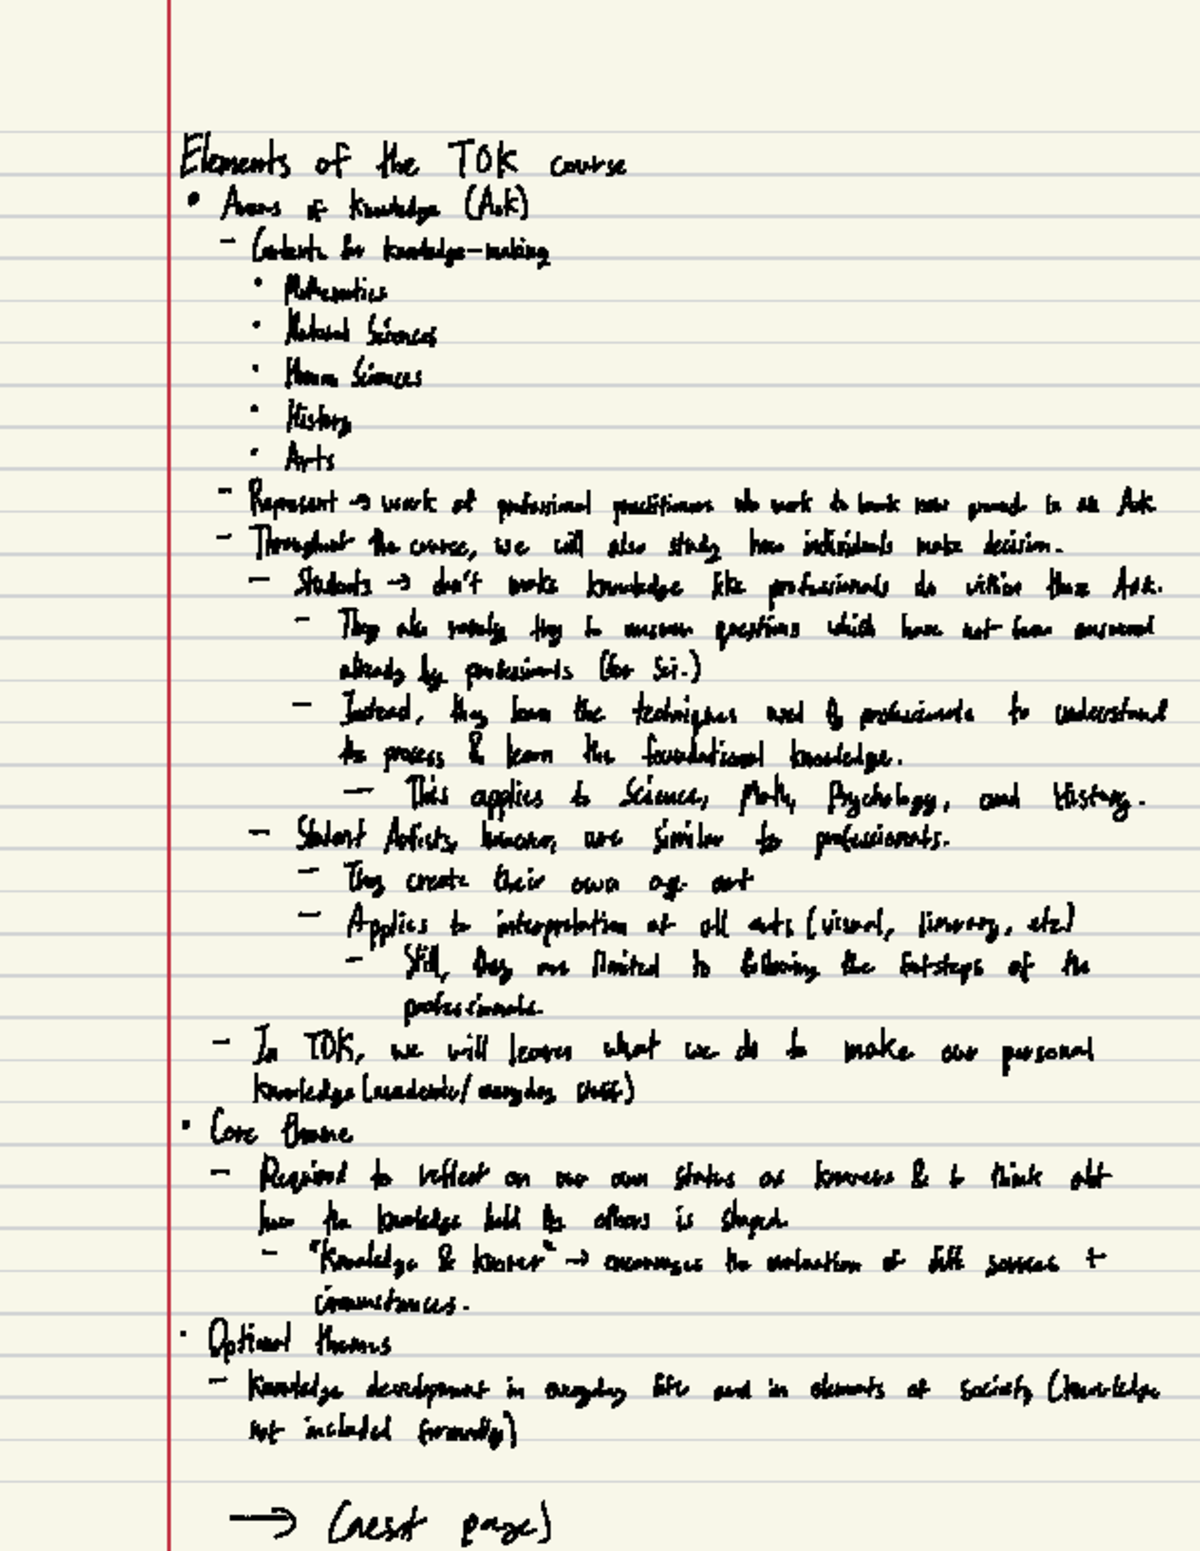 Elements of the TOK course
• Areas of Knowledge (AoK)
- Contexts for knowledge-making
• Mathematics
• Natural Sciences
• Human Sciences
• History
• Arts
- Represent → work of professional practitioners who work to break new ground in an AoK
- Throughout the course, we will also study how individuals make decision.
- Students → don't make knowledge like professionals do within these AoK.
- They also rarely try to answer questions which have not been answered
already by professionals (for Sci.)
- Instead, they learn the techniques used by professionals to understand
the process & learn the foundational knowledge.
- This applies to Science, Math, Psychology, and History.
- Student Artists, however, are similar to professionals.
- They create their own art
- Applies to interpretation of all arts (visual, literary, etc)
- Still, they are limited to following the footsteps of the
professionals.
- In TOK, we will learn what we do to make our personal
knowledge (academic/everyday stuff)
• Core theme
- Required to reflect on our own status as knowers & to think abt
how the knowledge held by others is shaped.
- "Knowledge & knower" → encourages the evaluation of diff sources +
circumstances.
• Optional themes
- Knowledge development in everyday life and in elements of society (knowledge
not included formally)
→ (next page)